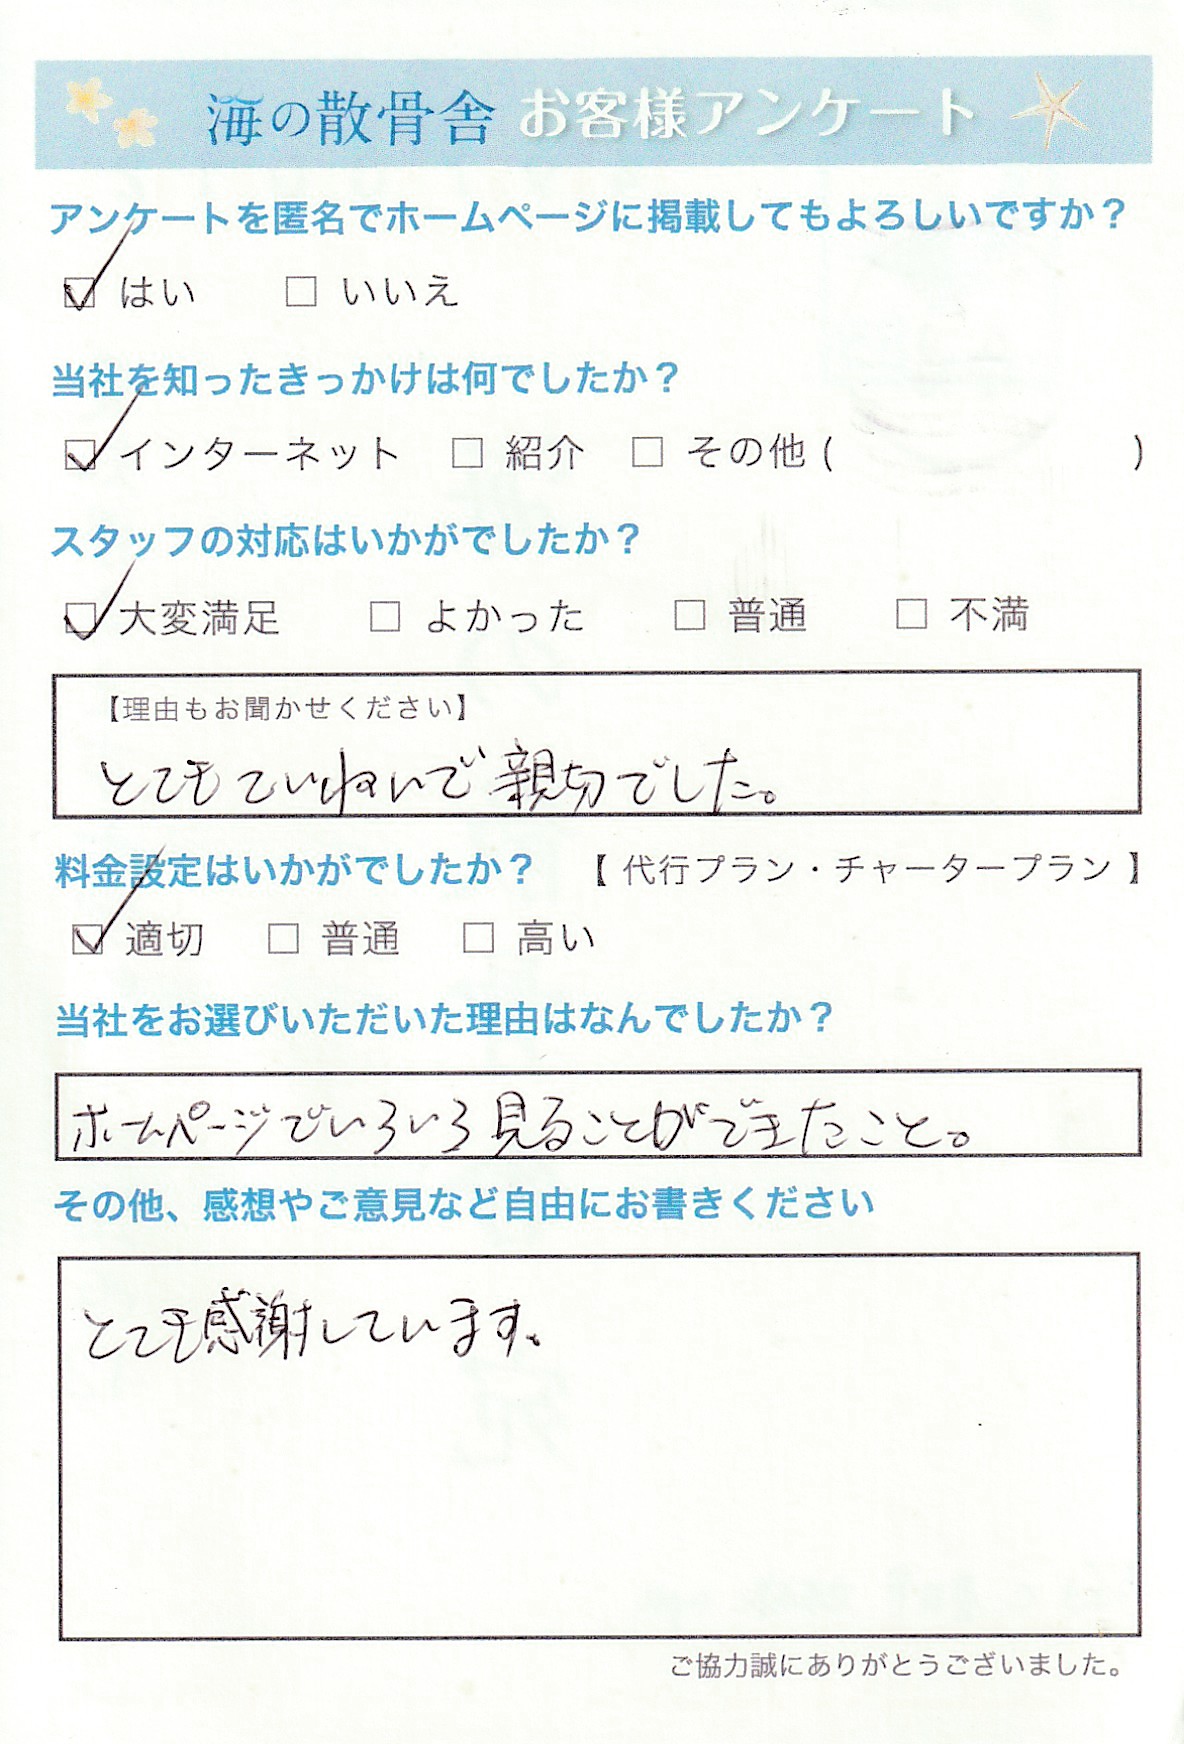 海の散骨舎 お客様アンケート
アンケートを匿名でホームページに掲載してもよろしいですか？
☑ はい □ いいえ
当社を知ったきっかけは何でしたか？
☑ インターネット □ 紹介 □ その他 ( )
スタッフの対応はいかがでしたか？
☑ 大変満足 □ よかった □ 普通 □ 不満
【理由もお聞かせください】
とてもていねいで親切でした。
料金設定はいかがでしたか？ 【 代行プラン・チャータープラン 】
☑ 適切 □ 普通 □ 高い
当社をお選びいただいた理由はなんでしたか？
ホームページでいろいろ見ることができたこと。
その他、感想やご意見など自由にお書きください
とても感謝しています。
ご協力誠にありがとうございました。